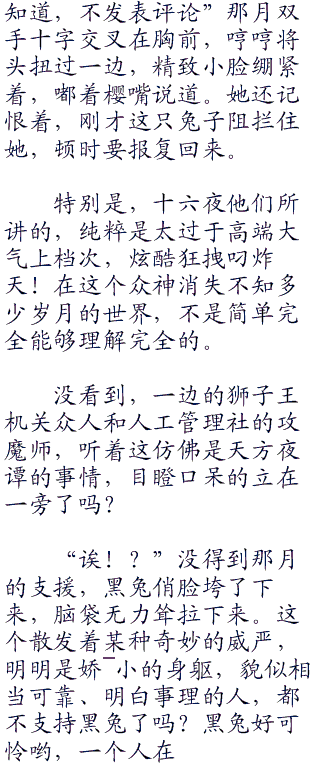 知道，不发表评论”那月双
手十字交叉在胸前，哼哼将
头扭过一边，精致小脸绷紧
着，嘟着樱嘴说道。她还记
恨着，刚才这只兔子阻拦住
她，顿时要报复回来。
特别是，十六夜他们所
讲的，纯粹是太过于高端大
气上档次，炫酷狂拽叼炸
天！在这个众神消失不知多
少岁月的世界，不是简单完
全能够理解完全的。
没看到，一边的狮子王
机关众人和人工管理社的攻
魔师，听着这仿佛是天方夜
谭的事情，目瞪口呆的立在
一旁了吗？
“诶！？”没得到那月
的支援，黑兔俏脸垮了下
来，脑袋无力耸拉下来。这
个散发着某种奇妙的威严，
明明是娇¯小的身躯，貌似相
当可靠、明白事理的人，都
不支持黑兔了吗？黑兔好可
怜哟，一个人在